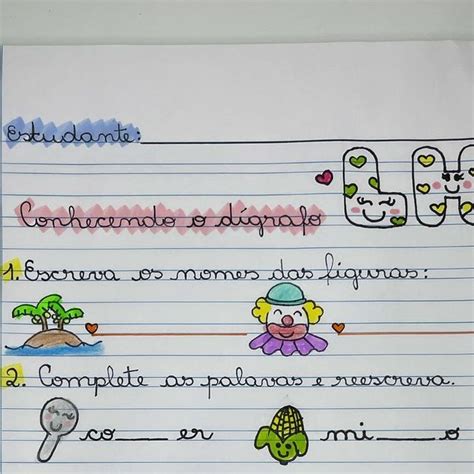 Estudante:
Conhecendo o dígrafo LH
1. Escreva os nomes das figuras:
2. Complete as palavras e reescreva.
co____er mi____o